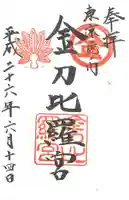 奉拝
東京虎ノ門
金刀比羅宮
平成二十六年六月十四日